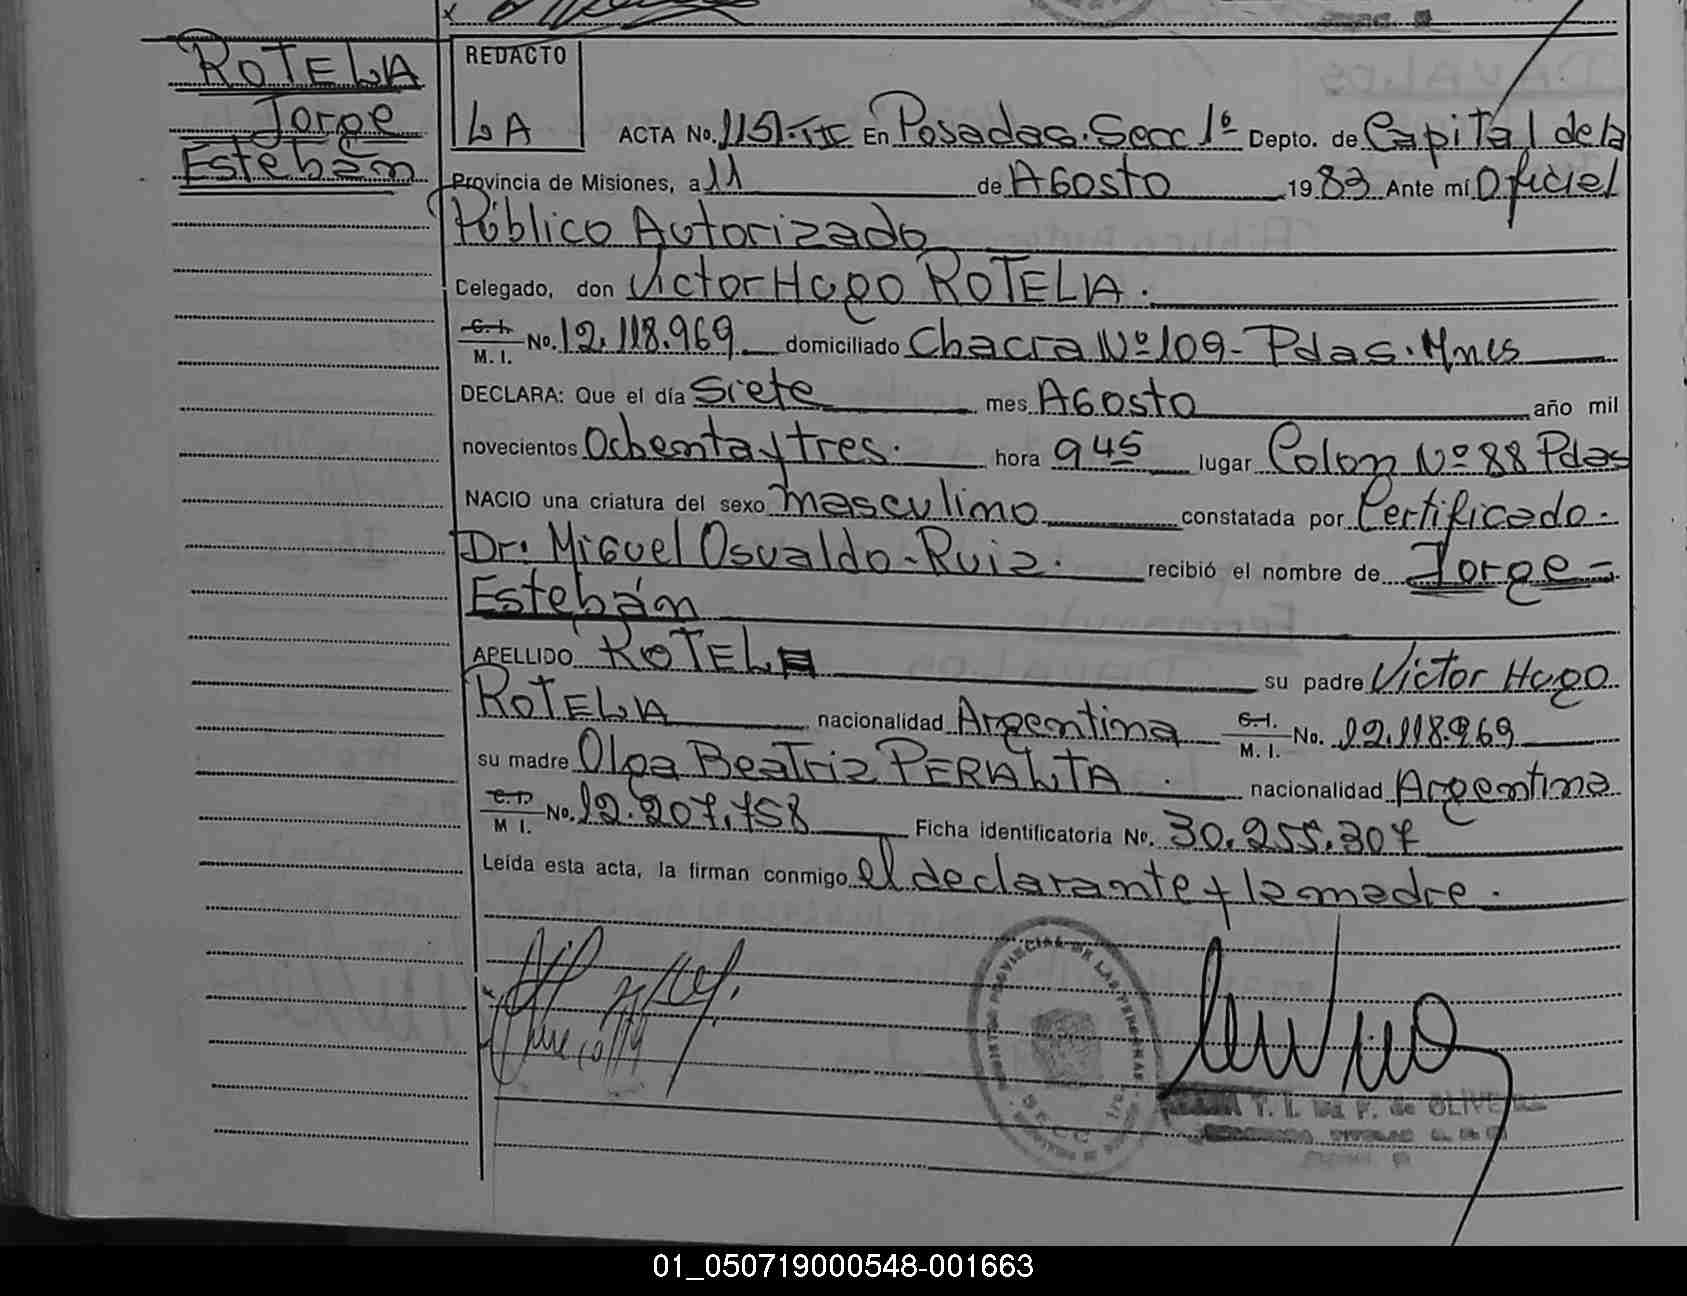 ROTELA
Jorge
Estebán
REDACTO
LA
ACTA No. 1151-III En Posadas. Secc 1º Depto. de Capital de la
Provincia de Misiones, a 11 de Agosto 1983 Ante mí Oficial
Público Autorizado
Celegado, don Victor Hugo ROTELA.
C.I. No. 12.118.969 domiciliado Chacra Nº 109 - Pdas. Mnes
M. I.
DECLARA: Que el día Siete mes Agosto año mil
novecientos Ochenta y tres. hora 9 45 lugar Colon Nº 88 Pdas
NACIO una criatura del sexo masculino constatada por Certificado.
Dr. Miguel Osvaldo - Ruiz. recibió el nombre de Jorge -
Estebán
APELLIDO ROTELA su padre Victor Hugo
ROTELA nacionalidad Argentina C.I. No. 12.118.969
M. I.
su madre Olga Beatriz PERALTA. nacionalidad Argentina
C.I. No. 12.207.758 Ficha identificatoria No. 30.255.307
M I.
Leída esta acta, la firman conmigo el declarante y la madre.
REGISTRO PROVINCIAL DE LAS PERSONAS
SECC.
de OLIVEIRA
01_050719000548-001663